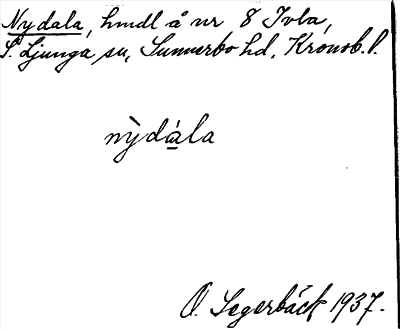 Nydala, hmdl å nr 8 Ivla,
S. Ljunga sn, Sunnerbo hd, Kronob. l.
nỳdála
O. Segerbäck 1937.